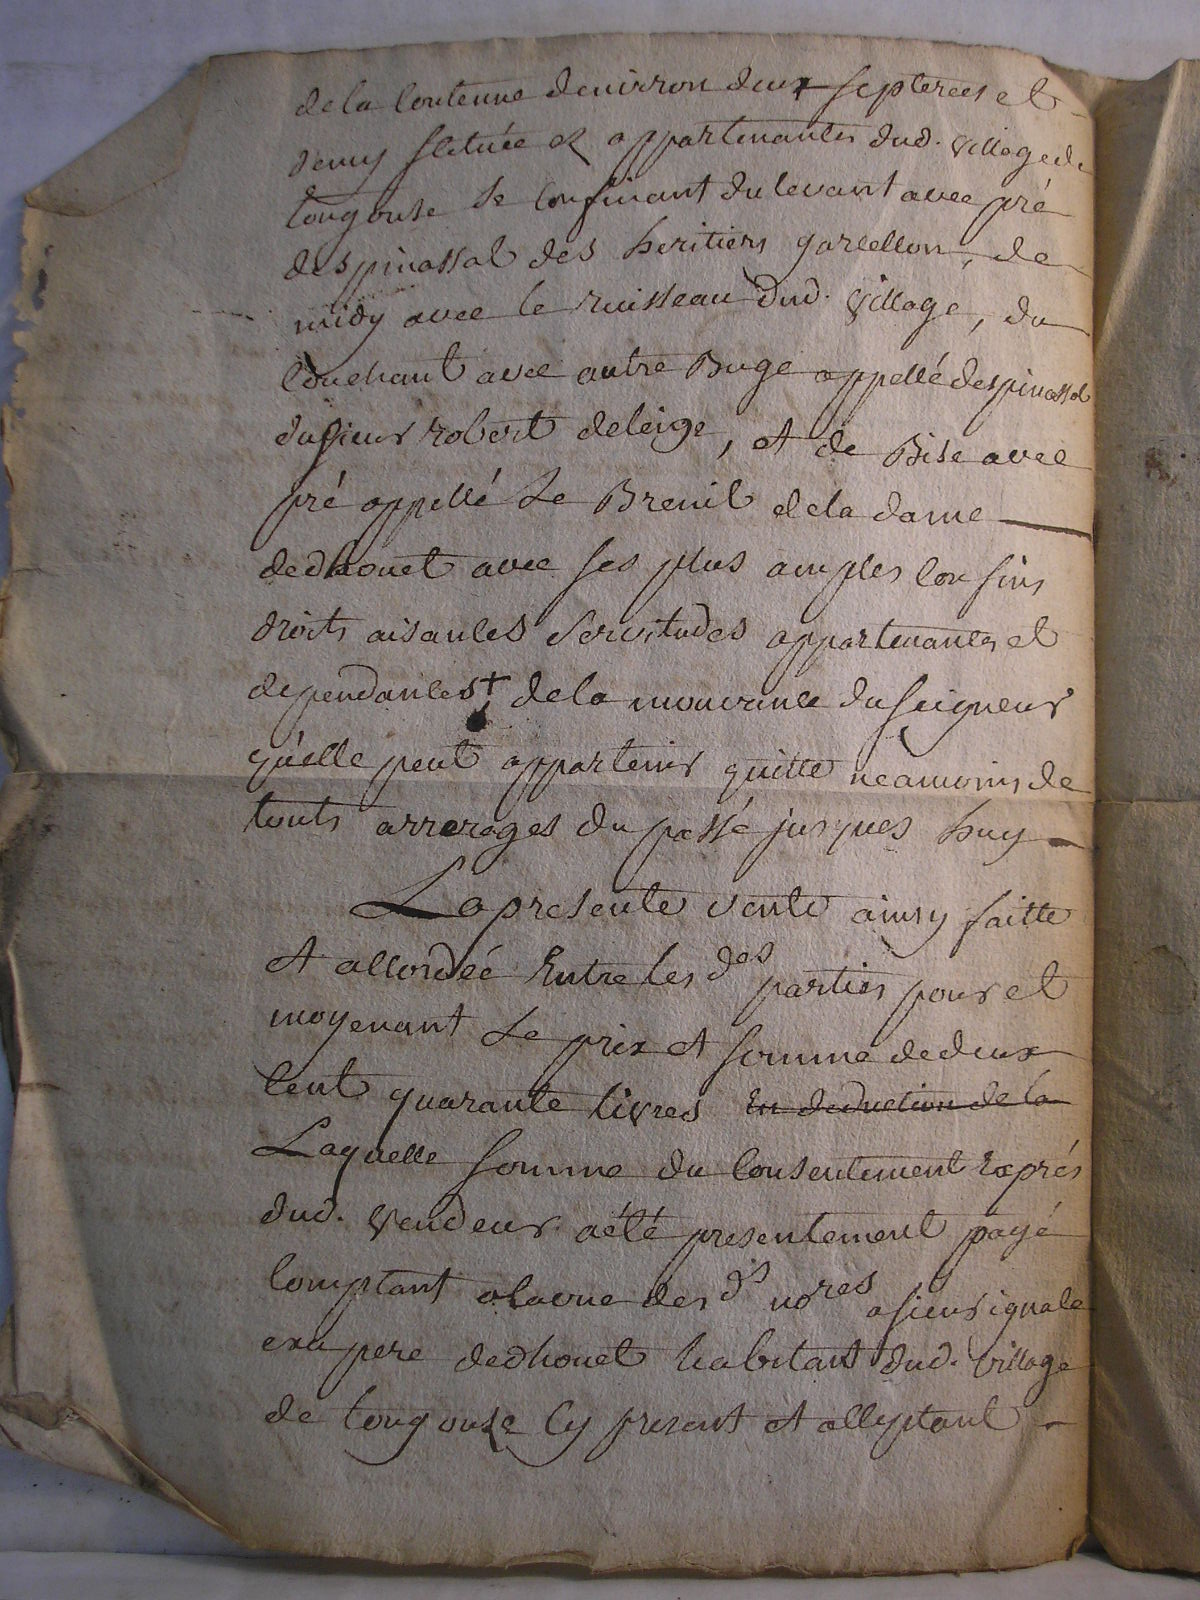 de la contenue denvirron deux septerées et
demy scituée et appartenantes dud. village de
tougouse se confinant du levant avec pré
despinassol des heritiers garcellon, de
midy avec le ruisseau dud. village, du
couchant avec autre Buge appellé despinassol
du sieur robert deleige, et de Bise avec
pré appellé Le Breuil de la dame
dedhouet avec ses plus amples confins
droits aisances servitudes appartenantes et
dependantes + de la mouvance du seigneur
qu'elle peut appartenir quitte neamoins de
touts arrerages du passé jusques huy
La presente vente ainsy faitte
et accordée Entre les des parties pour et
moyenant Le prix et somme de deux
cent quarante livres En deduction de la
Laquelle somme du consentement Exprés
dud. vendeur a été presentement payé
comptant a la vue des ds nores a sieur ignace
exupere dedhouet habitant dud. village
de tougouse cy present et acceptant